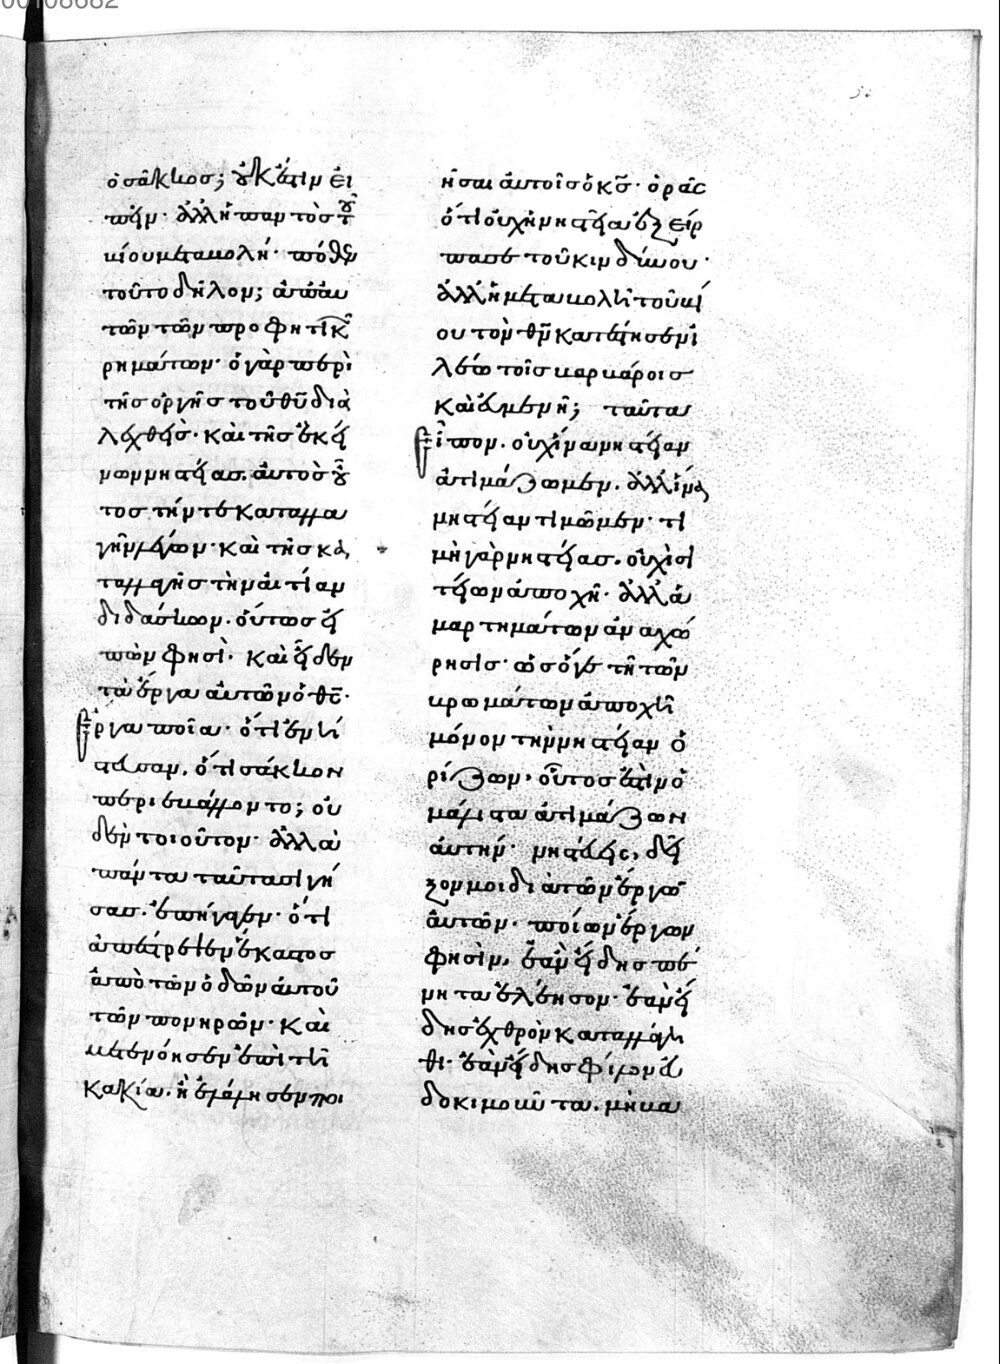 ὁ σάκκος; οὐκ ἔστιν εἰ
πεῖν· ἀλλ' ἡ παντὸς τοῦ
βίου μεταβολή· πόθεν
τοῦτο δῆλον; ἀπ' αὐ
τῶν τῶν προφητικῶν
ρημάτων· ὁ γὰρ περὶ
τῆς ὀργῆς τοῦ θυ δια
λεχθεὶς· καὶ τῆς ἐκεί
νων νηστείας. αὐτὸς οὗ
τος τήν τε καταλλα
γὴν λέγων· καὶ τῆς κα
ταλλαγῆς τὴν αἰτίαν
διδάσκων. οὕτως εἰ
πὼν φησὶ· καὶ εἶδεν
τὰ ἔργα αὐτῶν ὁ θς·
ἔργα ποῖα· ὅτι ἐνή
στευσαν, ὅτι σάκκον
περιεβάλλοντο; οὐ
δὲν τοιοῦτον· ἀλλὰ
πάντα ταῦτα σιγή
σας· ἐπήγαγεν· ὅτι
ἀπέστρεψεν ἕκαστος
ἀπὸ τῶν ὁδῶν αὐτοῦ
τῶν πονηρῶν· καὶ
μετενόησεν ἐπὶ τῆ
κακία. ἧ ἐλάλησεν ποι
ῆσαι αὐτοῖς ὁ κς· ὁρᾶς
ὅτι οὐχ ἡ νηστεία ἐξεῖρ
πασε τοῦ κινδύνου·
ἀλλ' ἡ μεταβολὴ τοῦ βί
ου τὸν θν κατέστησεν ἵ
λεω τοῖς βαρβάροις
καὶ εὐμενῆ; ταῦτα
εἶπον. οὐχ ἵνα νηστείαν
ἀτιμάζωμεν. ἀλλ' ἵνα
νηστείαν τιμῶμεν· τι
μὴ γὰρ νηστείας. οὐχὶ σι
τίων ἀποχὴ· ἀλλ' ἁ
μαρτημάτων ἀναχώ
ρησις· ὡς ὅγε τῆ τῶν
βρωμάτων ἀποχῆ
μόνον τὴν νηστείαν ὁ
ρίζων· οὗτος ἐστὶν ὁ
μάλιστα ἀτιμάζων
αὐτήν· νηστεύεις, δεῖ
ξον μοι διὰ τῶν ἔργω
αὐτῶν· ποίων ἔργων
φησὶν. ἐὰν εἴδης πέ
νητα ἐλέησον· ἐὰν εἴ
δης ἐχθρὸν καταλλάγη
θι· ἐὰν εἴδης φίλον εὐ
δοκιμοῦντα. μὴ βα